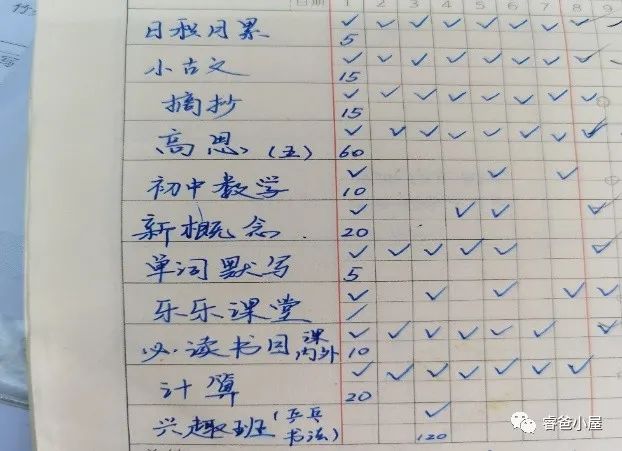 日期 1 2 3 4 5 6 7 8 9
日积月累 ✓ ✓ ✓ ✓ ✓ ✓ ✓ ✓
5
小古文 ✓ ✓ ✓ ✓ ✓ ✓ ✓ ✓
15
摘抄 ✓ ✓ ✓ ✓ ✓ ✓ ✓ ✓
15
高思(五) ✓ ✓ ✓ ✓ ✓ ✓ ✓ ✓
60
初中数学 ✓ ✓ ✓
10
新概念 ✓ ✓ ✓ ✓
20
单词默写 ✓ ✓ ✓ ✓ ✓ ✓
5
乐乐课堂 ✓ ✓ ✓ ✓ ✓
/
必读书目 课内外 ✓ ✓ ✓ ✓ ✓ ✓
10
计算 ✓ ✓ ✓ ✓ ✓ ✓ ✓
20
兴趣班(乒乓书法) ✓
120
睿爸小屋